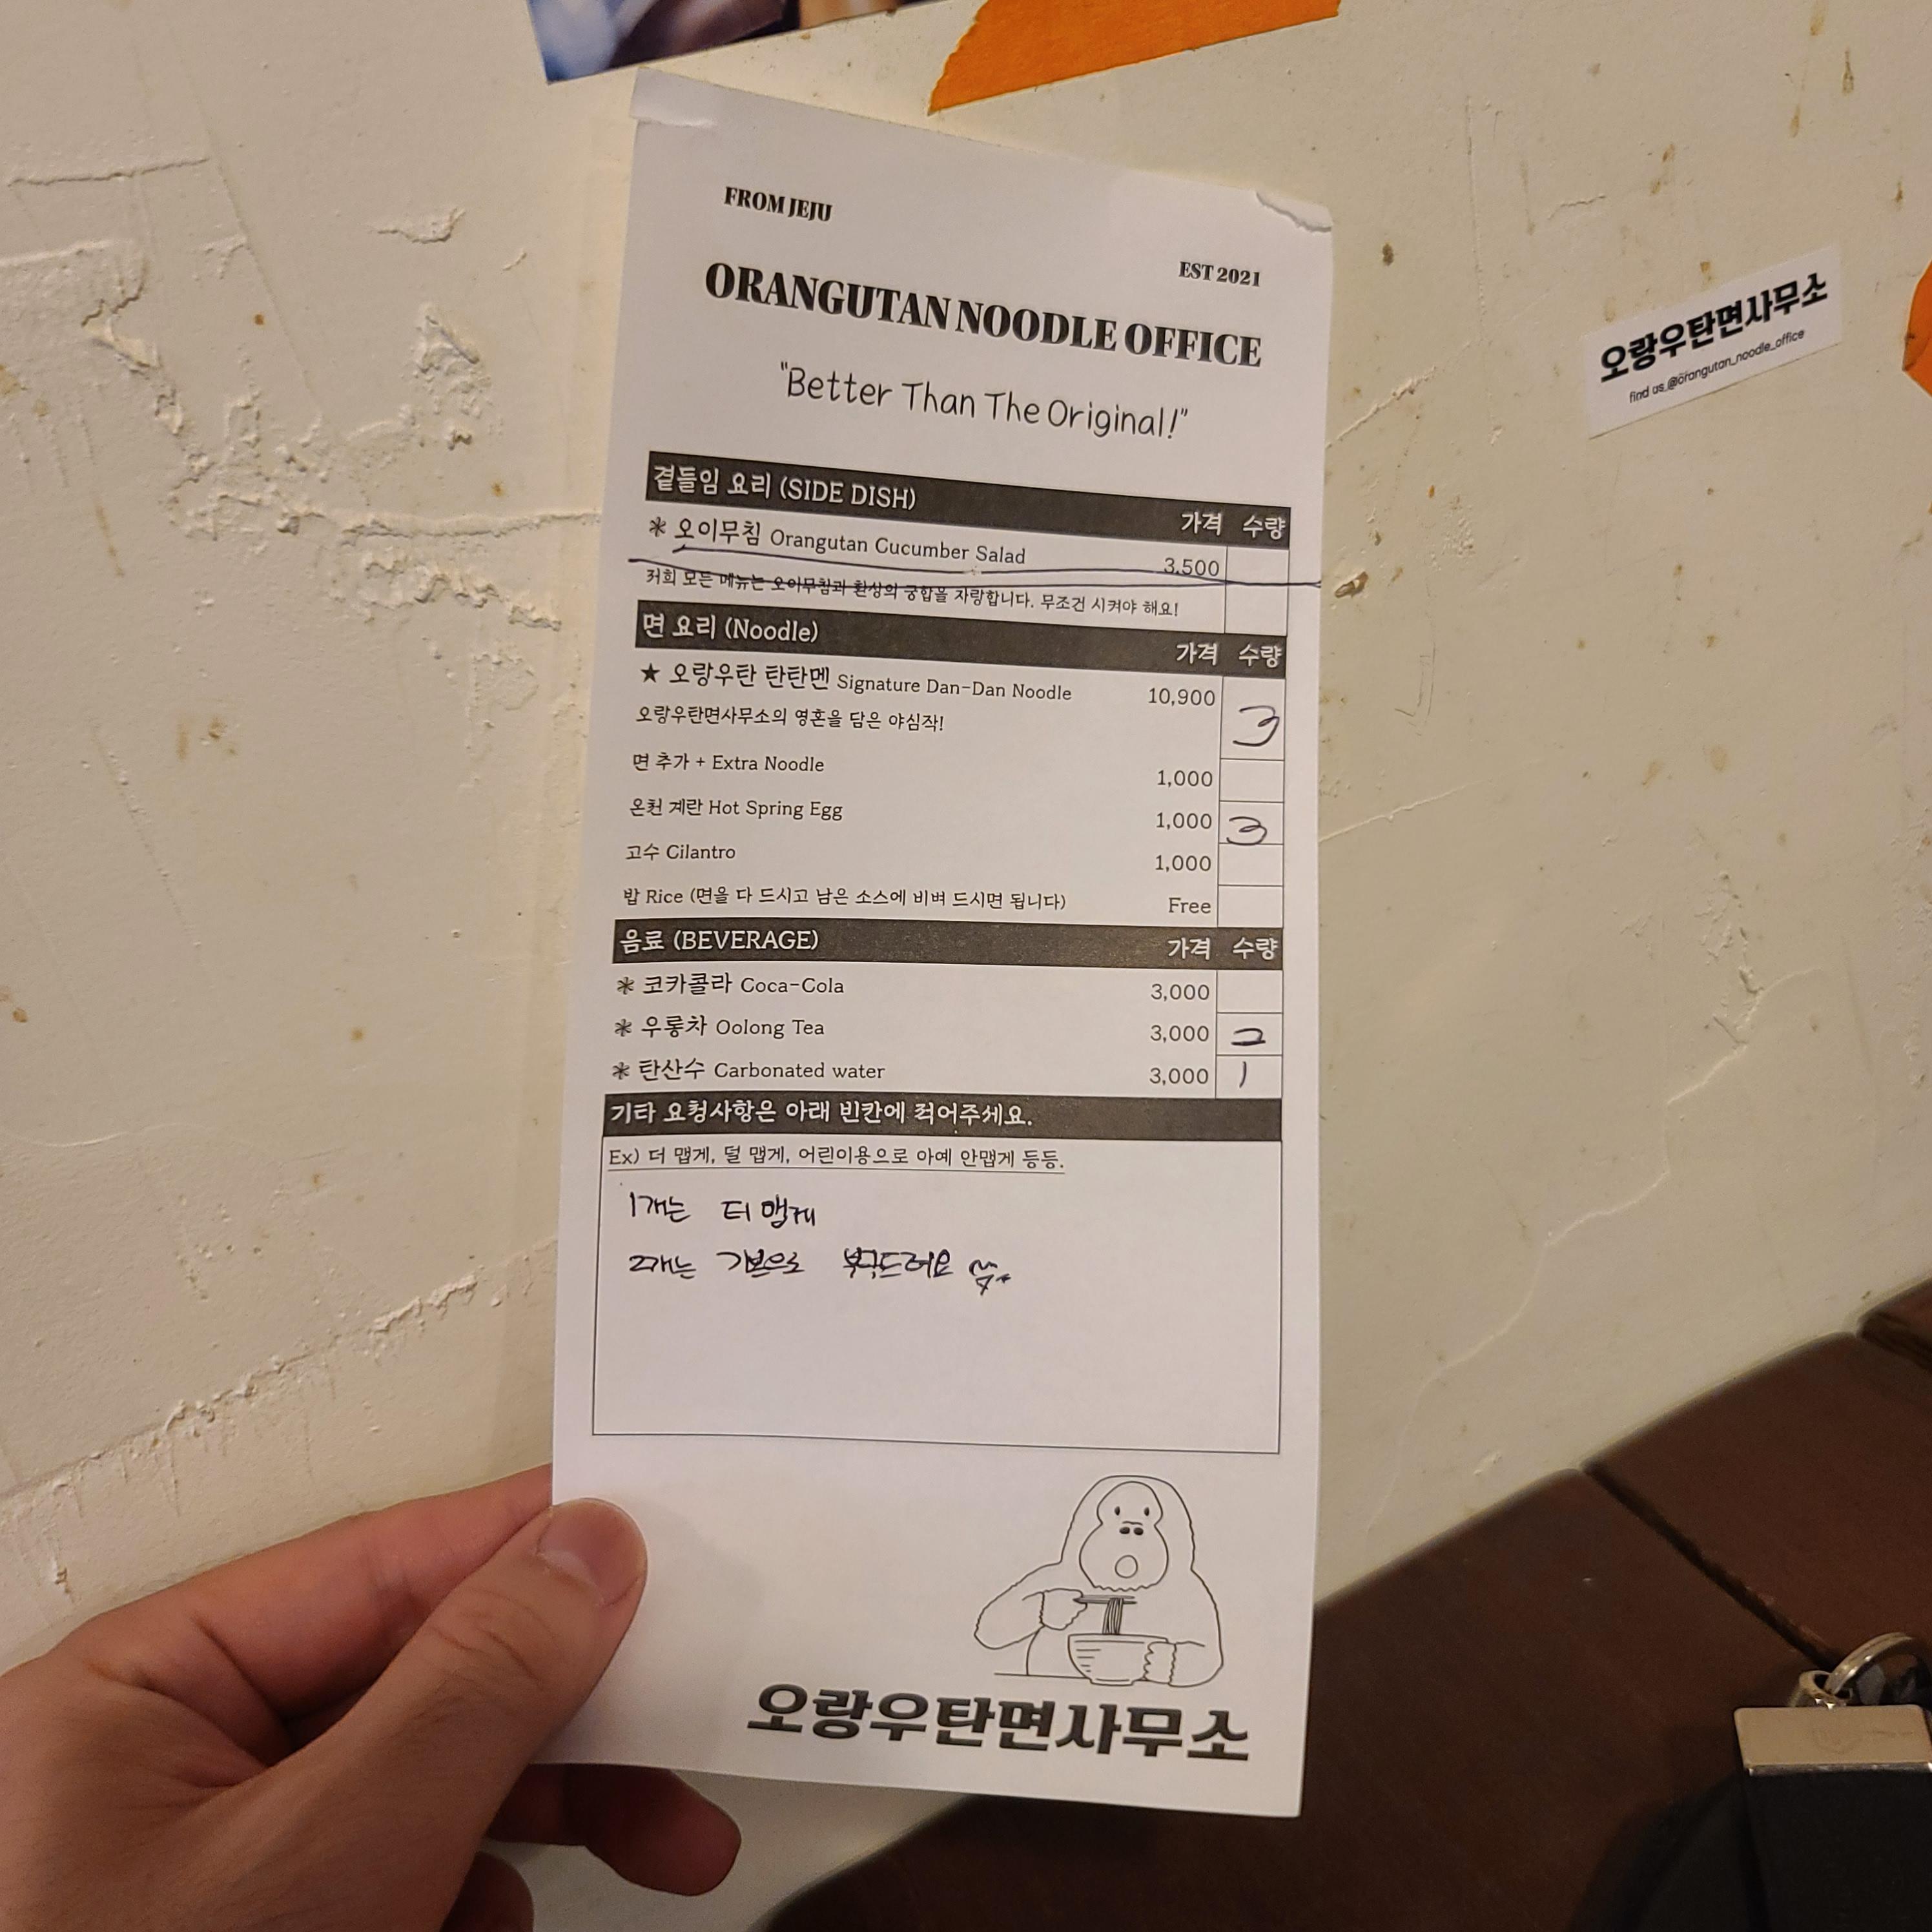 FROM JEJU
EST 2021
ORANGUTAN NOODLE OFFICE
"Better Than The Original!"
곁들임 요리 (SIDE DISH) 가격 수량
* 오이무침 Orangutan Cucumber Salad 3,500
저희 모든 메뉴는 오이무침과 환상의 궁합을 자랑합니다. 무조건 시켜야 해요!
면 요리 (Noodle) 가격 수량
★ 오랑우탄 탄탄멘 Signature Dan-Dan Noodle 10,900 3
오랑우탄면사무소의 영혼을 담은 야심작!
면 추가 + Extra Noodle 1,000
온천 계란 Hot Spring Egg 1,000 3
고수 Cilantro 1,000
밥 Rice (면을 다 드시고 남은 소스에 비벼 드시면 됩니다) Free
음료 (BEVERAGE) 가격 수량
* 코카콜라 Coca-Cola 3,000
* 우롱차 Oolong Tea 3,000 2
* 탄산수 Carbonated water 3,000 1
기타 요청사항은 아래 빈칸에 적어주세요.
Ex) 더 맵게, 덜 맵게, 어린이용으로 아예 안맵게 등등.
1개는 더 맵게
2개는 기본으로 부탁드려요
오랑우탄면사무소
오랑우탄면사무소
find us @orangutan_noodle_office